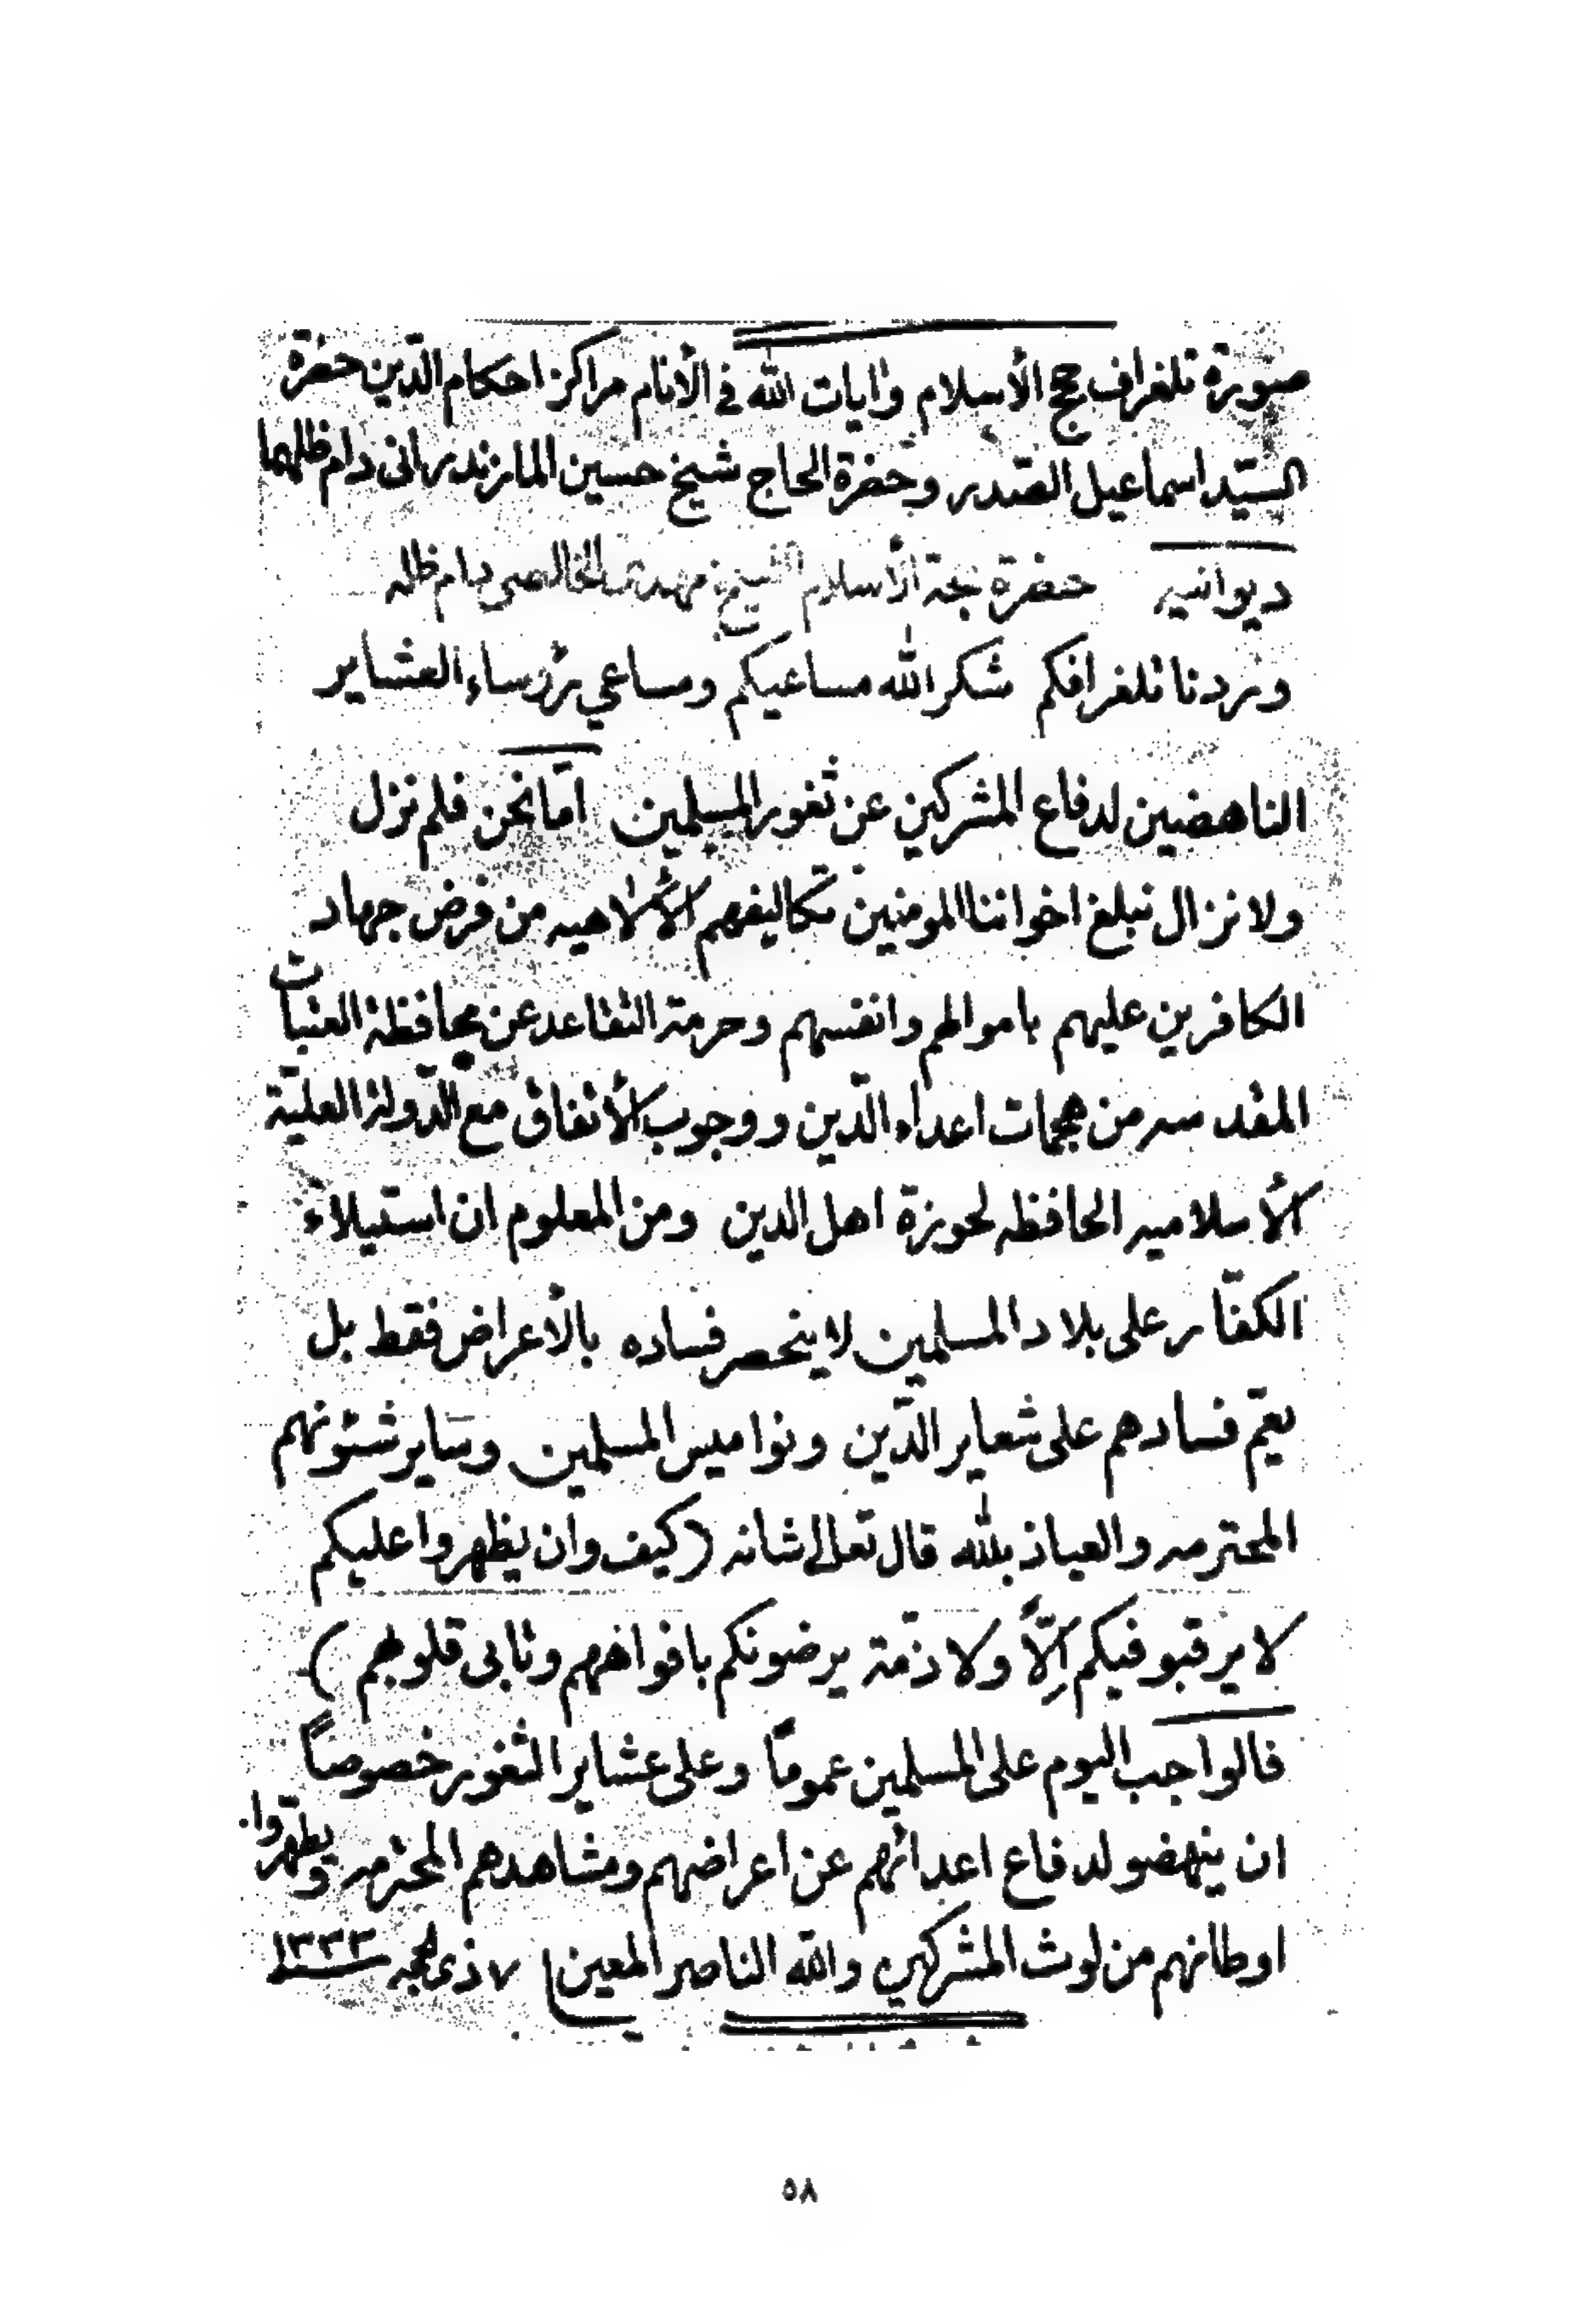 صورة تلغراف حجج الأسلام وايات الله في الأنام مراكز احكام الدّين حضرة
السيّد اسماعيل الصّدر وحضرة الحاج شيخ حسين المازندرانى دام ظلهما
ديوانيه حضرة حجة الأسلام الشيخ مهدى الخالصى دام ظله
وردنا تلغرافكم شكر الله مساعيكم ومساعي رؤساء العشاير
الناهضين لدفاع المشركين عن ثغور المسلمين امّا نحن فلم نزل
ولا نزال نبلغ اخواننا المومنين تكاليفهم الألاهيه من فرض جهاد
الكافرين عليهم باموالهم وانفسهم وحرمة التقاعد عن محافظة العتبات
المقدسه من هجمات اعداء الدّين ووجوب الأتفاق مع الدّولة العليّة
الأسلاميه الحافظه لحوزة اهل الدين ومن المعلوم ان استيلاء
الكفّار على بلاد المسلمين لا ينحصر فساده بالأعراض فقط بل
يعمّ فسادهم على شعاير الدّين ونواميس المسلمين وساير شئونهم
المحترمه والعياذ بلله قال تعالى شانه (كيف وان يظهروا عليكم
لا يرقبو فيكم اِلّاً ولا ذمّة يرضونكم بافواههم وتابى قلوبهم)
فالواجب اليوم على المسلمين عمومًا وعلى عشاير الثغور خصوصاً
ان ينهضو لدفاع اعدائهم عن اعراضهم ومشاهدهم المحترمه ويطهّروا
اوطانهم من لوث المشركين والله الناصر المعين ٧ ذى لحجه ١٣٣٣
٥٨